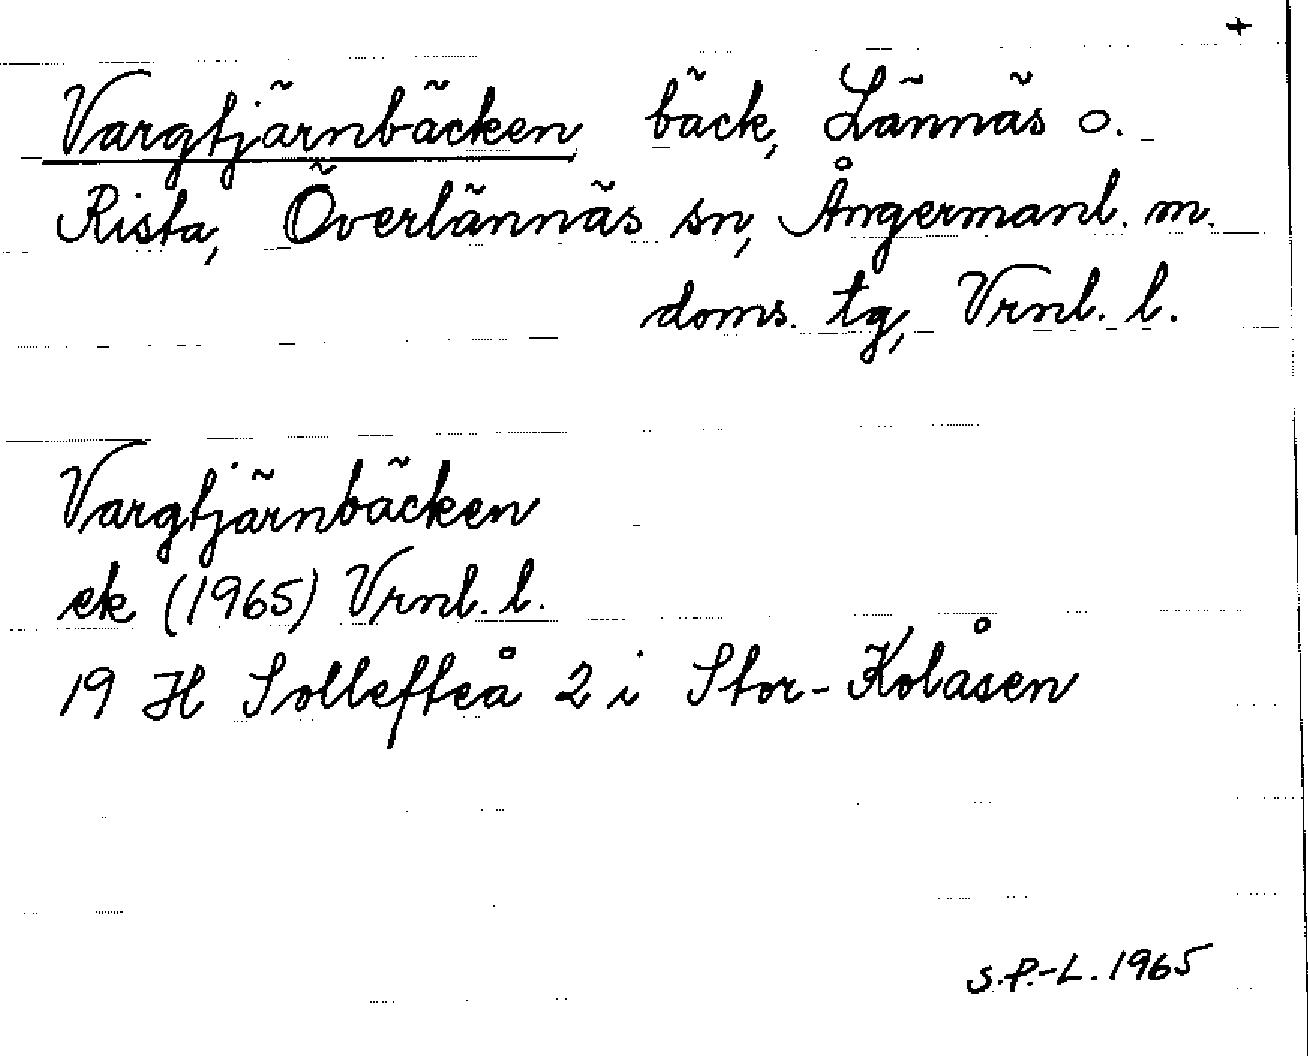 +
Vargtjärnbäcken bäck, Lännäs o.
Rista, Överlännäs sn, Ångermanl. m.
doms. tg, Vrnl. l.
Vargtjärnbäcken
ek (1965) Vrnl. l.
19 H Sollefteå 2 i Stor-Kolåsen
S.P.-L. 1965